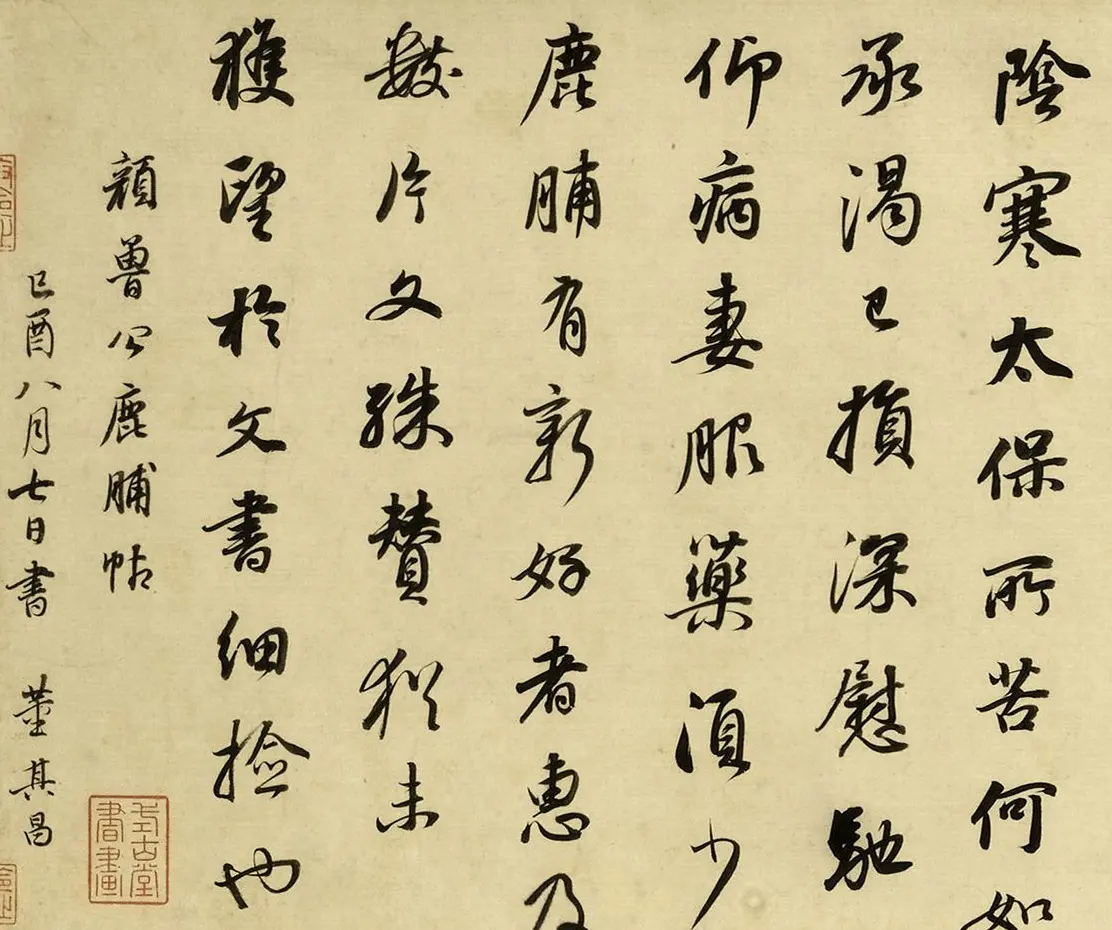 陰寒太保所苦何如
承渴已損深慰馳
仰病妻服藥須少
鹿脯有新好者惠及
數片又殊贊猶未
獲望於文書細撿也
顏魯公鹿脯帖
己酉八月七日書 董其昌
式古堂書畫